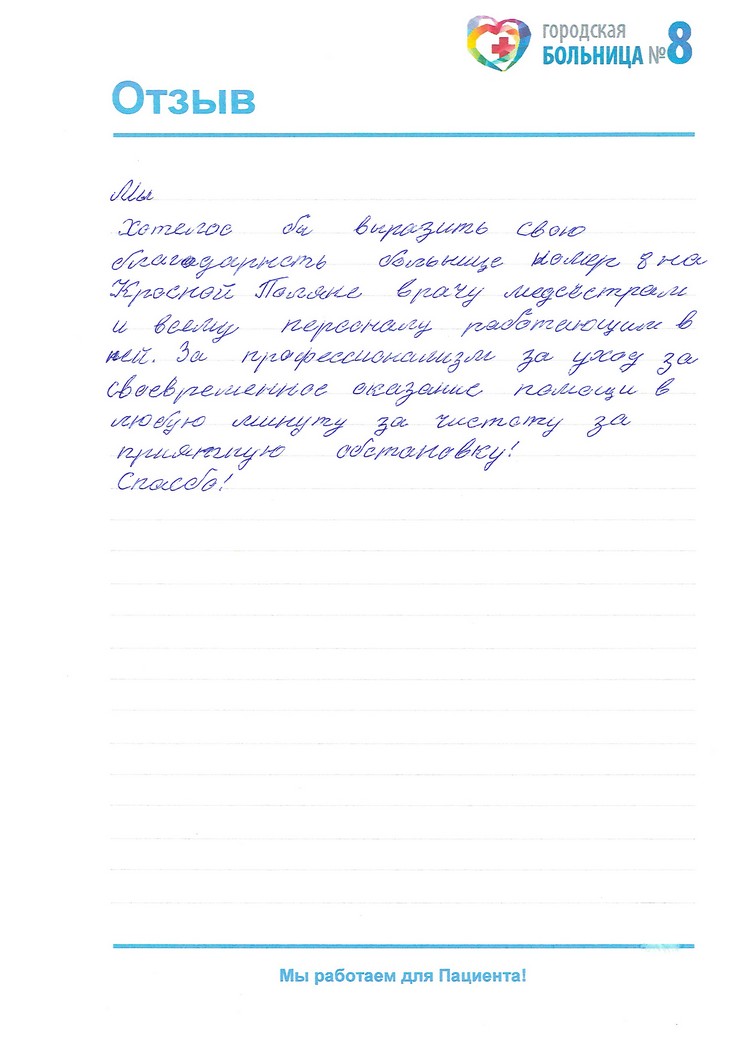 городская
БОЛЬНИЦА №8
Отзыв
Мы
Хотелос бы выразить свою
благодарнсть больнице номер 8 на
Красной Поляне врачу медсёстрам
и всему персоналу работающим в
ней. За профессионализм за уход за
своевременное оказание помощи в
любую минуту за чистоту за
приятную обстановку!
Спасбо!
Мы работаем для Пациента!